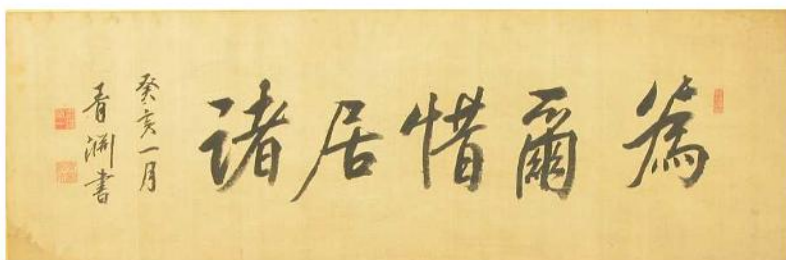 為爾惜居諸
癸亥一月
青淵書